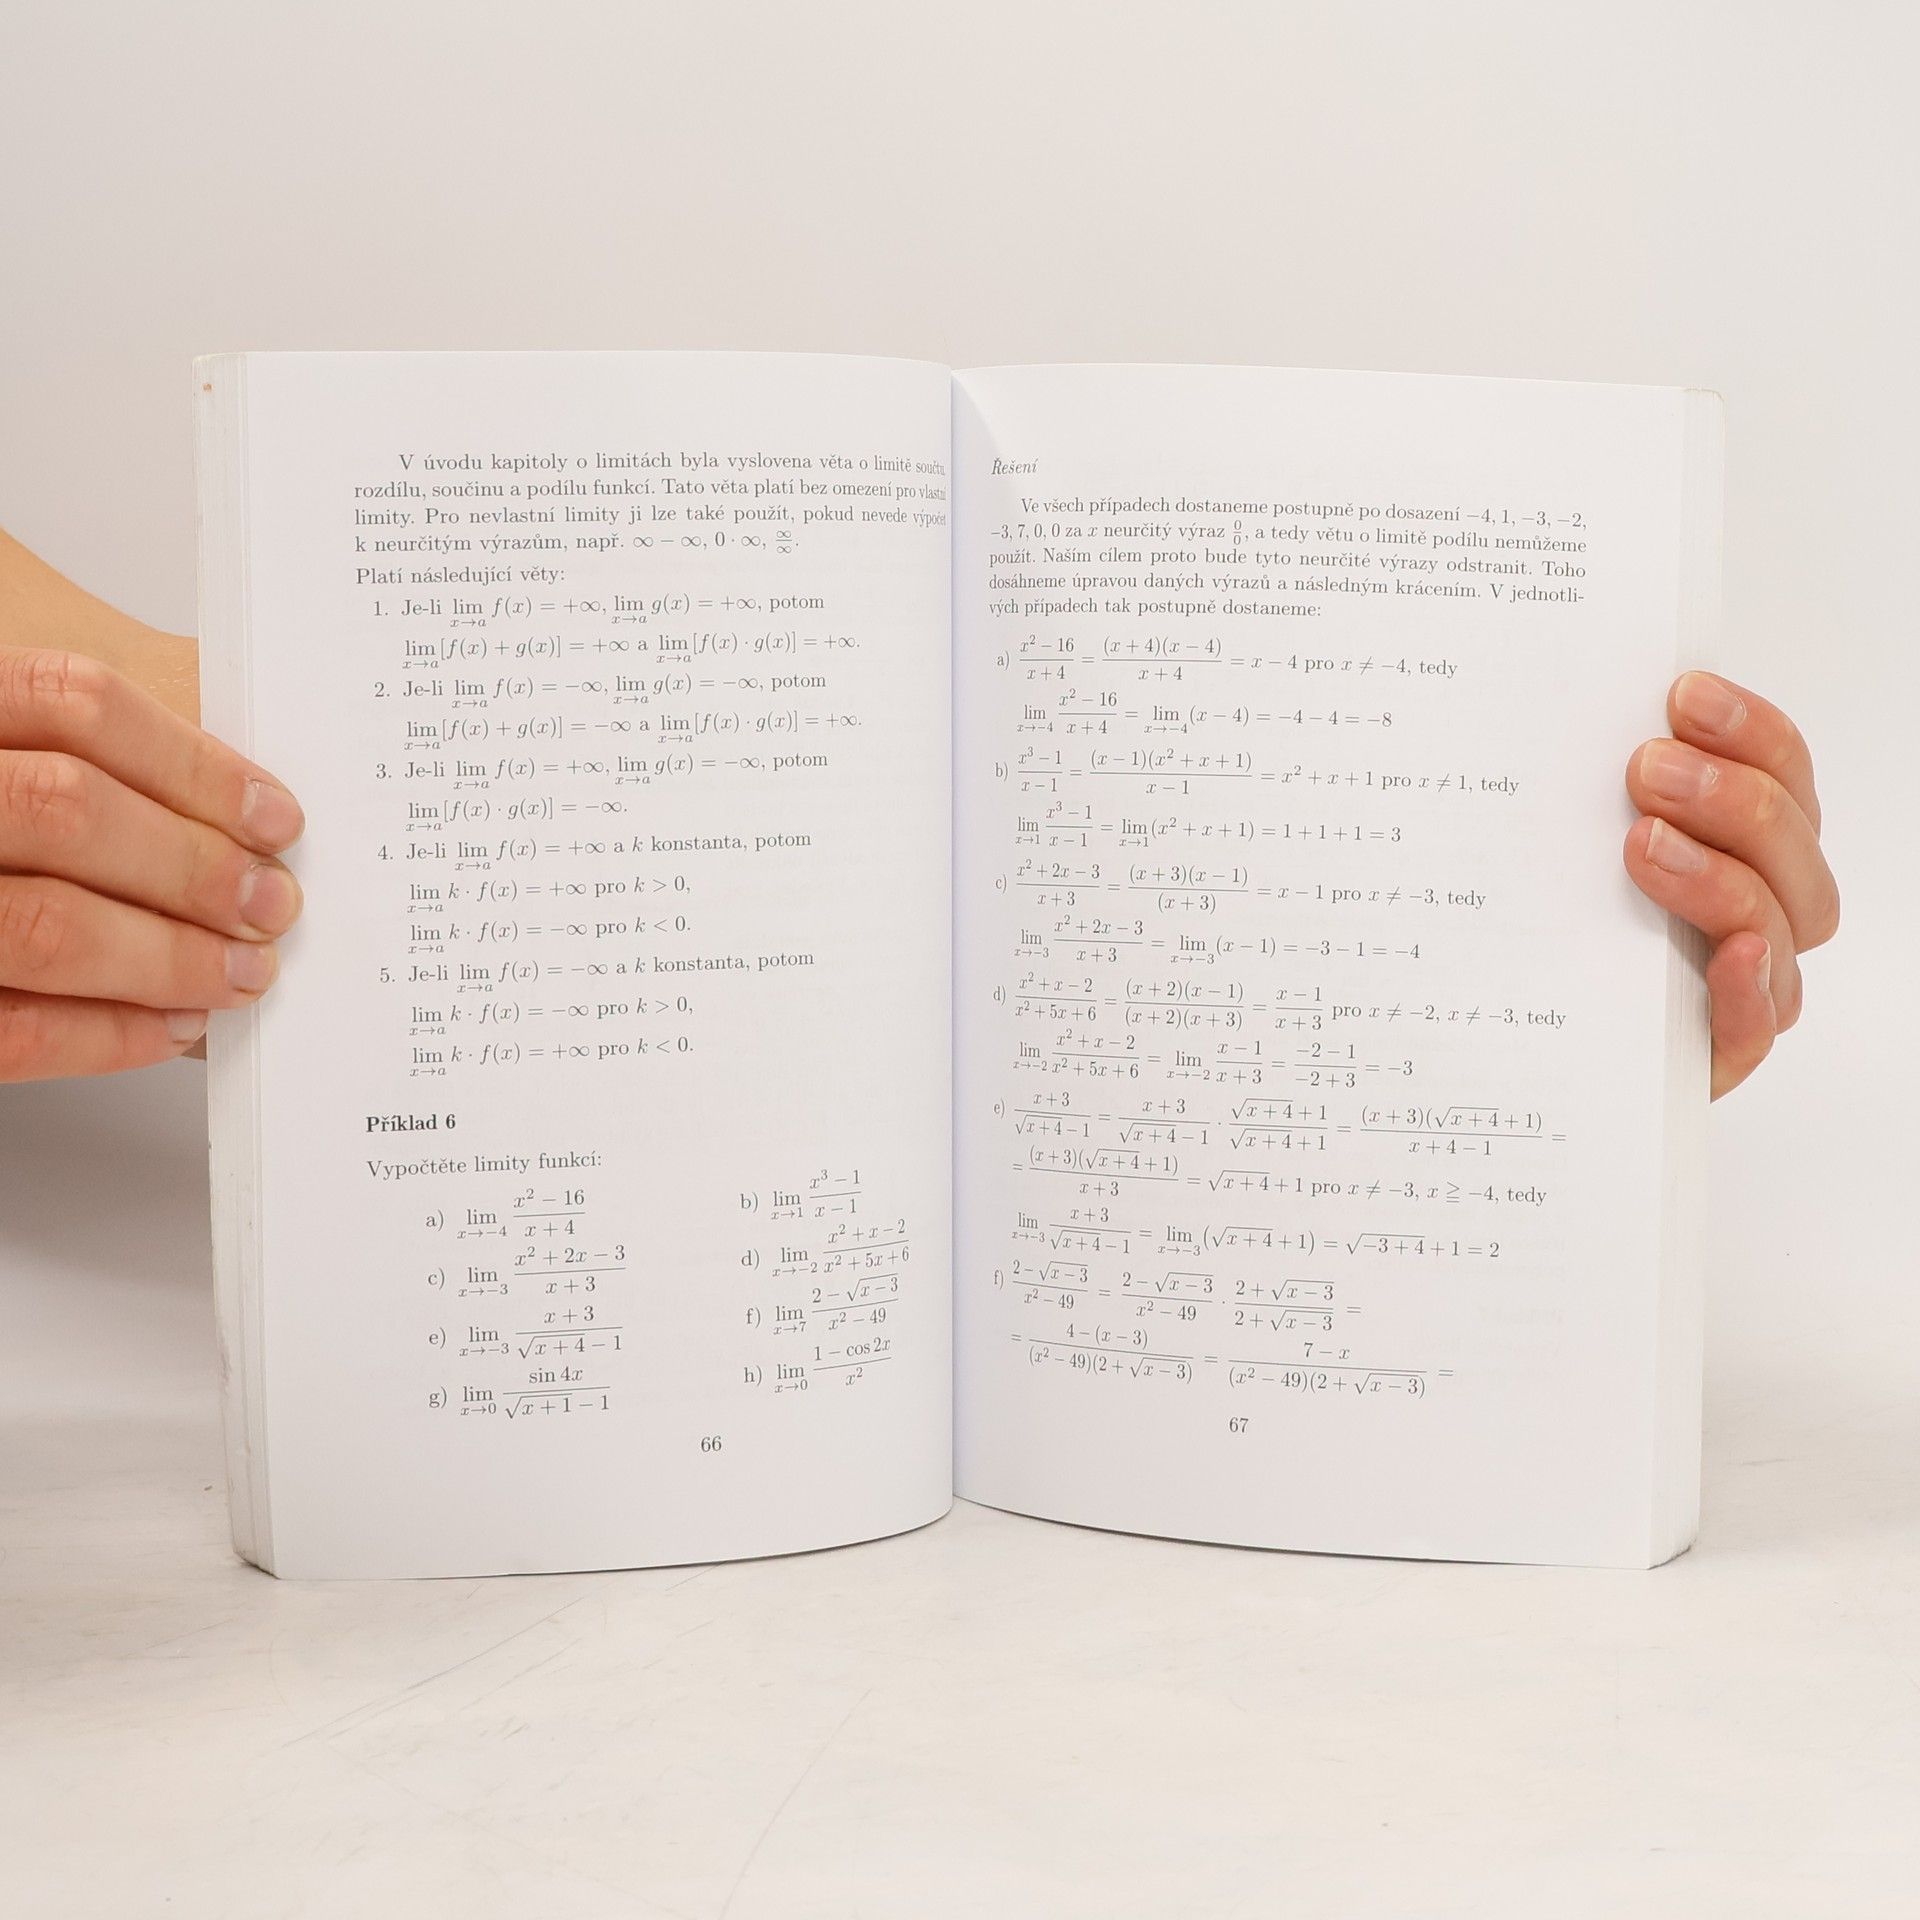 V úvodu kapitoly o limitách byla vyslovena věta o limitě součtu,
rozdílu, součinu a podílu funkcí. Tato věta platí bez omezení pro vlastní
limity. Pro nevlastní limity ji lze také použít, pokud nevede výpočet
k neurčitým výrazům, např. ∞ − ∞, 0 · ∞, ∞/∞.
Platí následující věty:
1. Je-li lim_{x→a} f(x) = +∞, lim_{x→a} g(x) = +∞, potom
lim_{x→a} [f(x) + g(x)] = +∞ a lim_{x→a} [f(x) · g(x)] = +∞.
2. Je-li lim_{x→a} f(x) = −∞, lim_{x→a} g(x) = −∞, potom
lim_{x→a} [f(x) + g(x)] = −∞ a lim_{x→a} [f(x) · g(x)] = +∞.
3. Je-li lim_{x→a} f(x) = +∞, lim_{x→a} g(x) = −∞, potom
lim_{x→a} [f(x) · g(x)] = −∞.
4. Je-li lim_{x→a} f(x) = +∞ a k konstanta, potom
lim_{x→a} k · f(x) = +∞ pro k > 0,
lim_{x→a} k · f(x) = −∞ pro k < 0.
5. Je-li lim_{x→a} f(x) = −∞ a k konstanta, potom
lim_{x→a} k · f(x) = −∞ pro k > 0,
lim_{x→a} k · f(x) = +∞ pro k < 0.
Příklad 6
Vypočtěte limity funkcí:
a) lim_{x→−4} (x² − 16)/(x + 4) b) lim_{x→1} (x³ − 1)/(x − 1)
c) lim_{x→−3} (x² + 2x − 3)/(x + 3) d) lim_{x→−2} (x² + x − 2)/(x² + 5x + 6)
e) lim_{x→−3} (x + 3)/(√(x + 4) − 1) f) lim_{x→7} (2 − √(x − 3))/(x² − 49)
g) lim_{x→0} (sin 4x)/(√(x + 1) − 1) h) lim_{x→0} (1 − cos 2x)/x²
66
Řešení
Ve všech případech dostaneme postupně po dosazení −4, 1, −3, −2,
−3, 7, 0, 0 za x neurčitý výraz 0/0, a tedy větu o limitě podílu nemůžeme
použít. Naším cílem proto bude tyto neurčité výrazy odstranit. Toho
dosáhneme úpravou daných výrazů a následným krácením. V jednotli-
vých případech tak postupně dostaneme:
a) (x² − 16)/(x + 4) = ((x + 4)(x − 4))/(x + 4) = x − 4 pro x ≠ −4, tedy
lim_{x→−4} (x² − 16)/(x + 4) = lim_{x→−4} (x − 4) = −4 − 4 = −8
b) (x³ − 1)/(x − 1) = ((x − 1)(x² + x + 1))/(x − 1) = x² + x + 1 pro x ≠ 1, tedy
lim_{x→1} (x³ − 1)/(x − 1) = lim_{x→1} (x² + x + 1) = 1 + 1 + 1 = 3
c) (x² + 2x − 3)/(x + 3) = ((x + 3)(x − 1))/((x + 3)) = x − 1 pro x ≠ −3, tedy
lim_{x→−3} (x² + 2x − 3)/(x + 3) = lim_{x→−3} (x − 1) = −3 − 1 = −4
d) (x² + x − 2)/(x² + 5x + 6) = ((x + 2)(x − 1))/((x + 2)(x + 3)) = (x − 1)/(x + 3) pro x ≠ −2, x ≠ −3, tedy
lim_{x→−2} (x² + x − 2)/(x² + 5x + 6) = lim_{x→−2} (x − 1)/(x + 3) = (−2 − 1)/(−2 + 3) = −3
e) (x + 3)/(√(x + 4) − 1) = (x + 3)/(√(x + 4) − 1) · (√(x + 4) + 1)/(√(x + 4) + 1) = ((x + 3)(√(x + 4) + 1))/(x + 4 − 1) =
= ((x + 3)(√(x + 4) + 1))/(x + 3) = √(x + 4) + 1 pro x ≠ −3, x ≧ −4, tedy
lim_{x→−3} (x + 3)/(√(x + 4) − 1) = lim_{x→−3} (√(x + 4) + 1) = √(−3 + 4) + 1 = 2
f) (2 − √(x − 3))/(x² − 49) = (2 − √(x − 3))/(x² − 49) · (2 + √(x − 3))/(2 + √(x − 3)) =
= (4 − (x − 3))/((x² − 49)(2 + √(x − 3))) = (7 − x)/((x² − 49)(2 + √(x − 3))) =
67